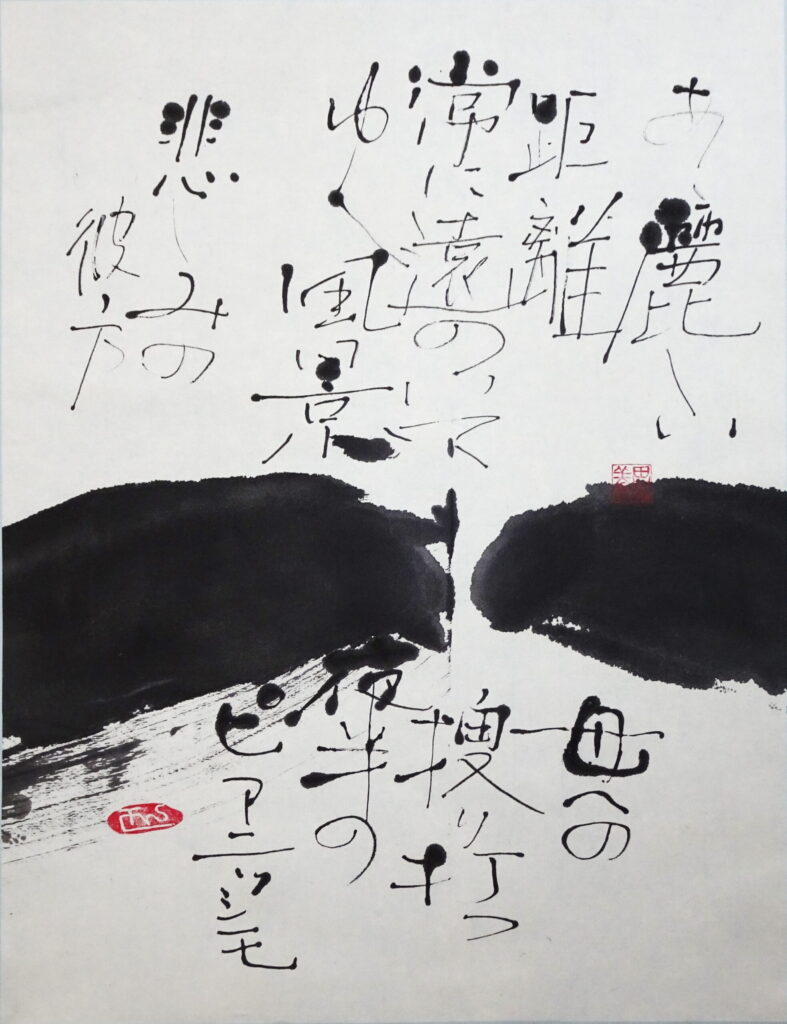 あゝ麗しい
距離
常に遠のいて
ゆく風景
悲しみの
彼方
母への
捜り打つ
夜半の
ピアニッシモ